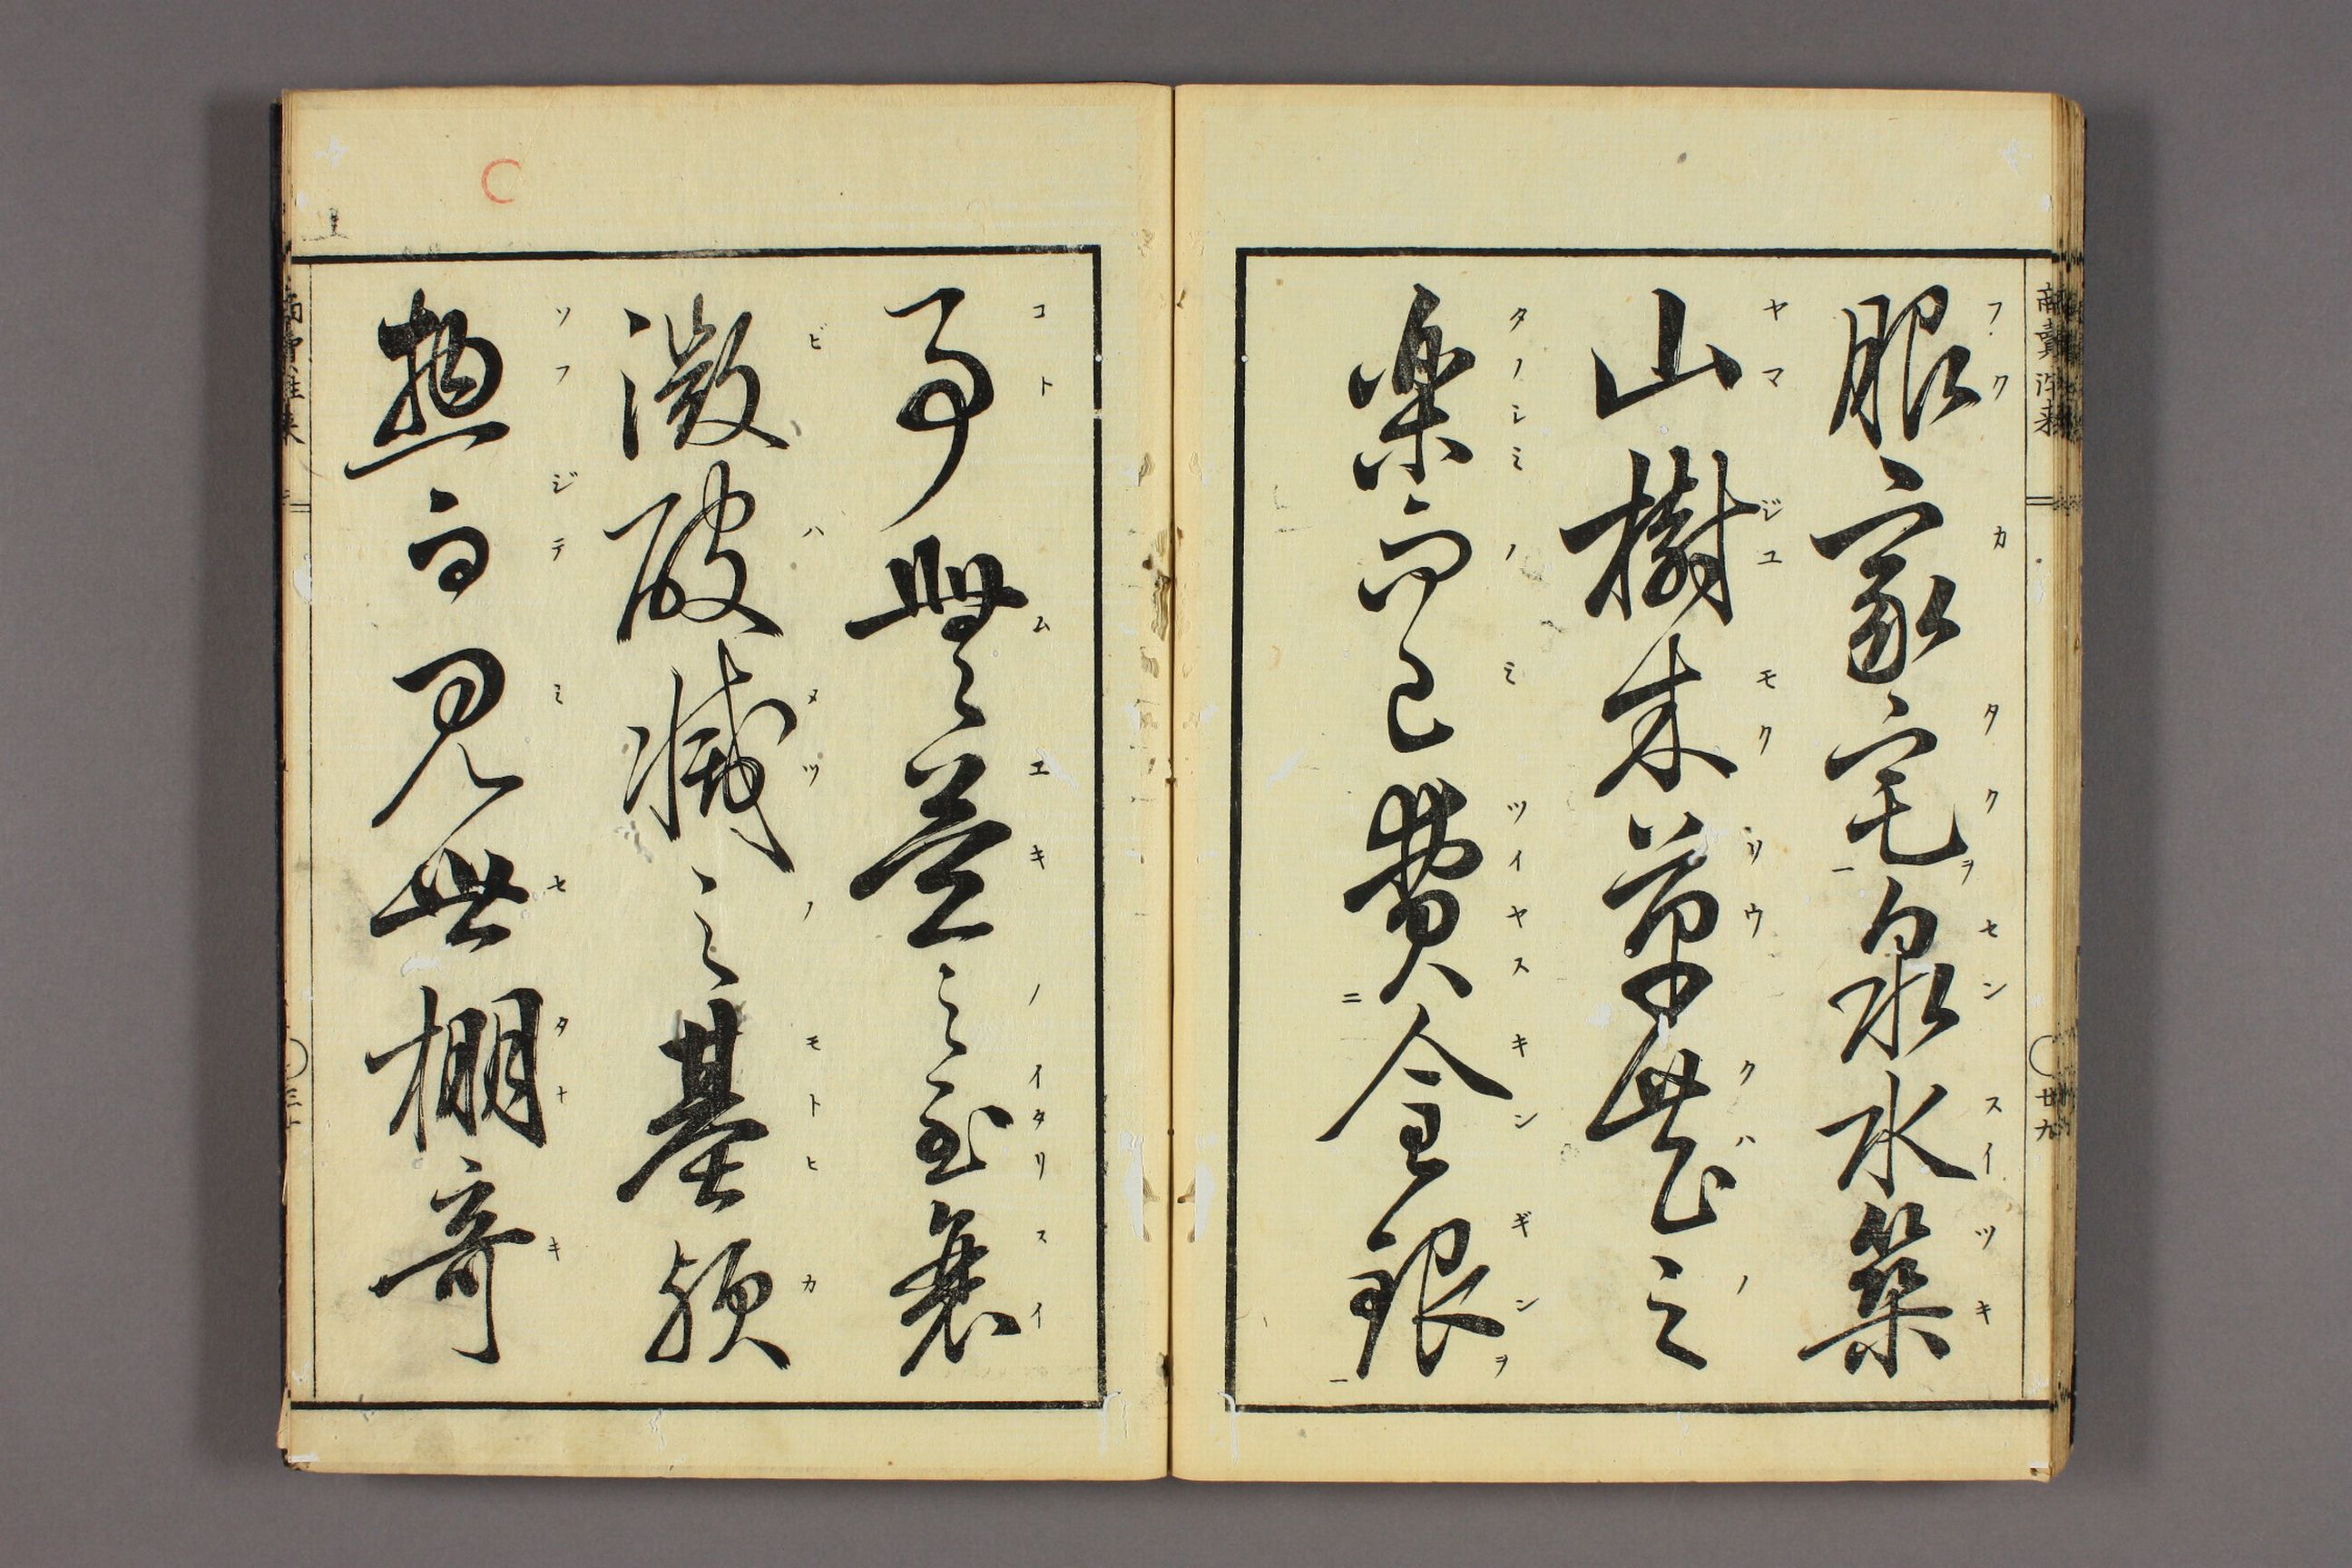 商賣徃来 廿九
フク カ タクヲ センスイ ツキ
服家宅一泉水築
ヤマ ジユモク サウ クハ ノ
山樹木草花之
タノシミ ノミ ツイヤス キンギンヲ
楽而已費二金銀一
コト ムエキ ノ イタリ スイ
事無益之至衰
ビ ハメツ ノ モトヒ カ
微破滅之基歟
ソフジテ ミセタナ キ
惣而見世棚奇
三十